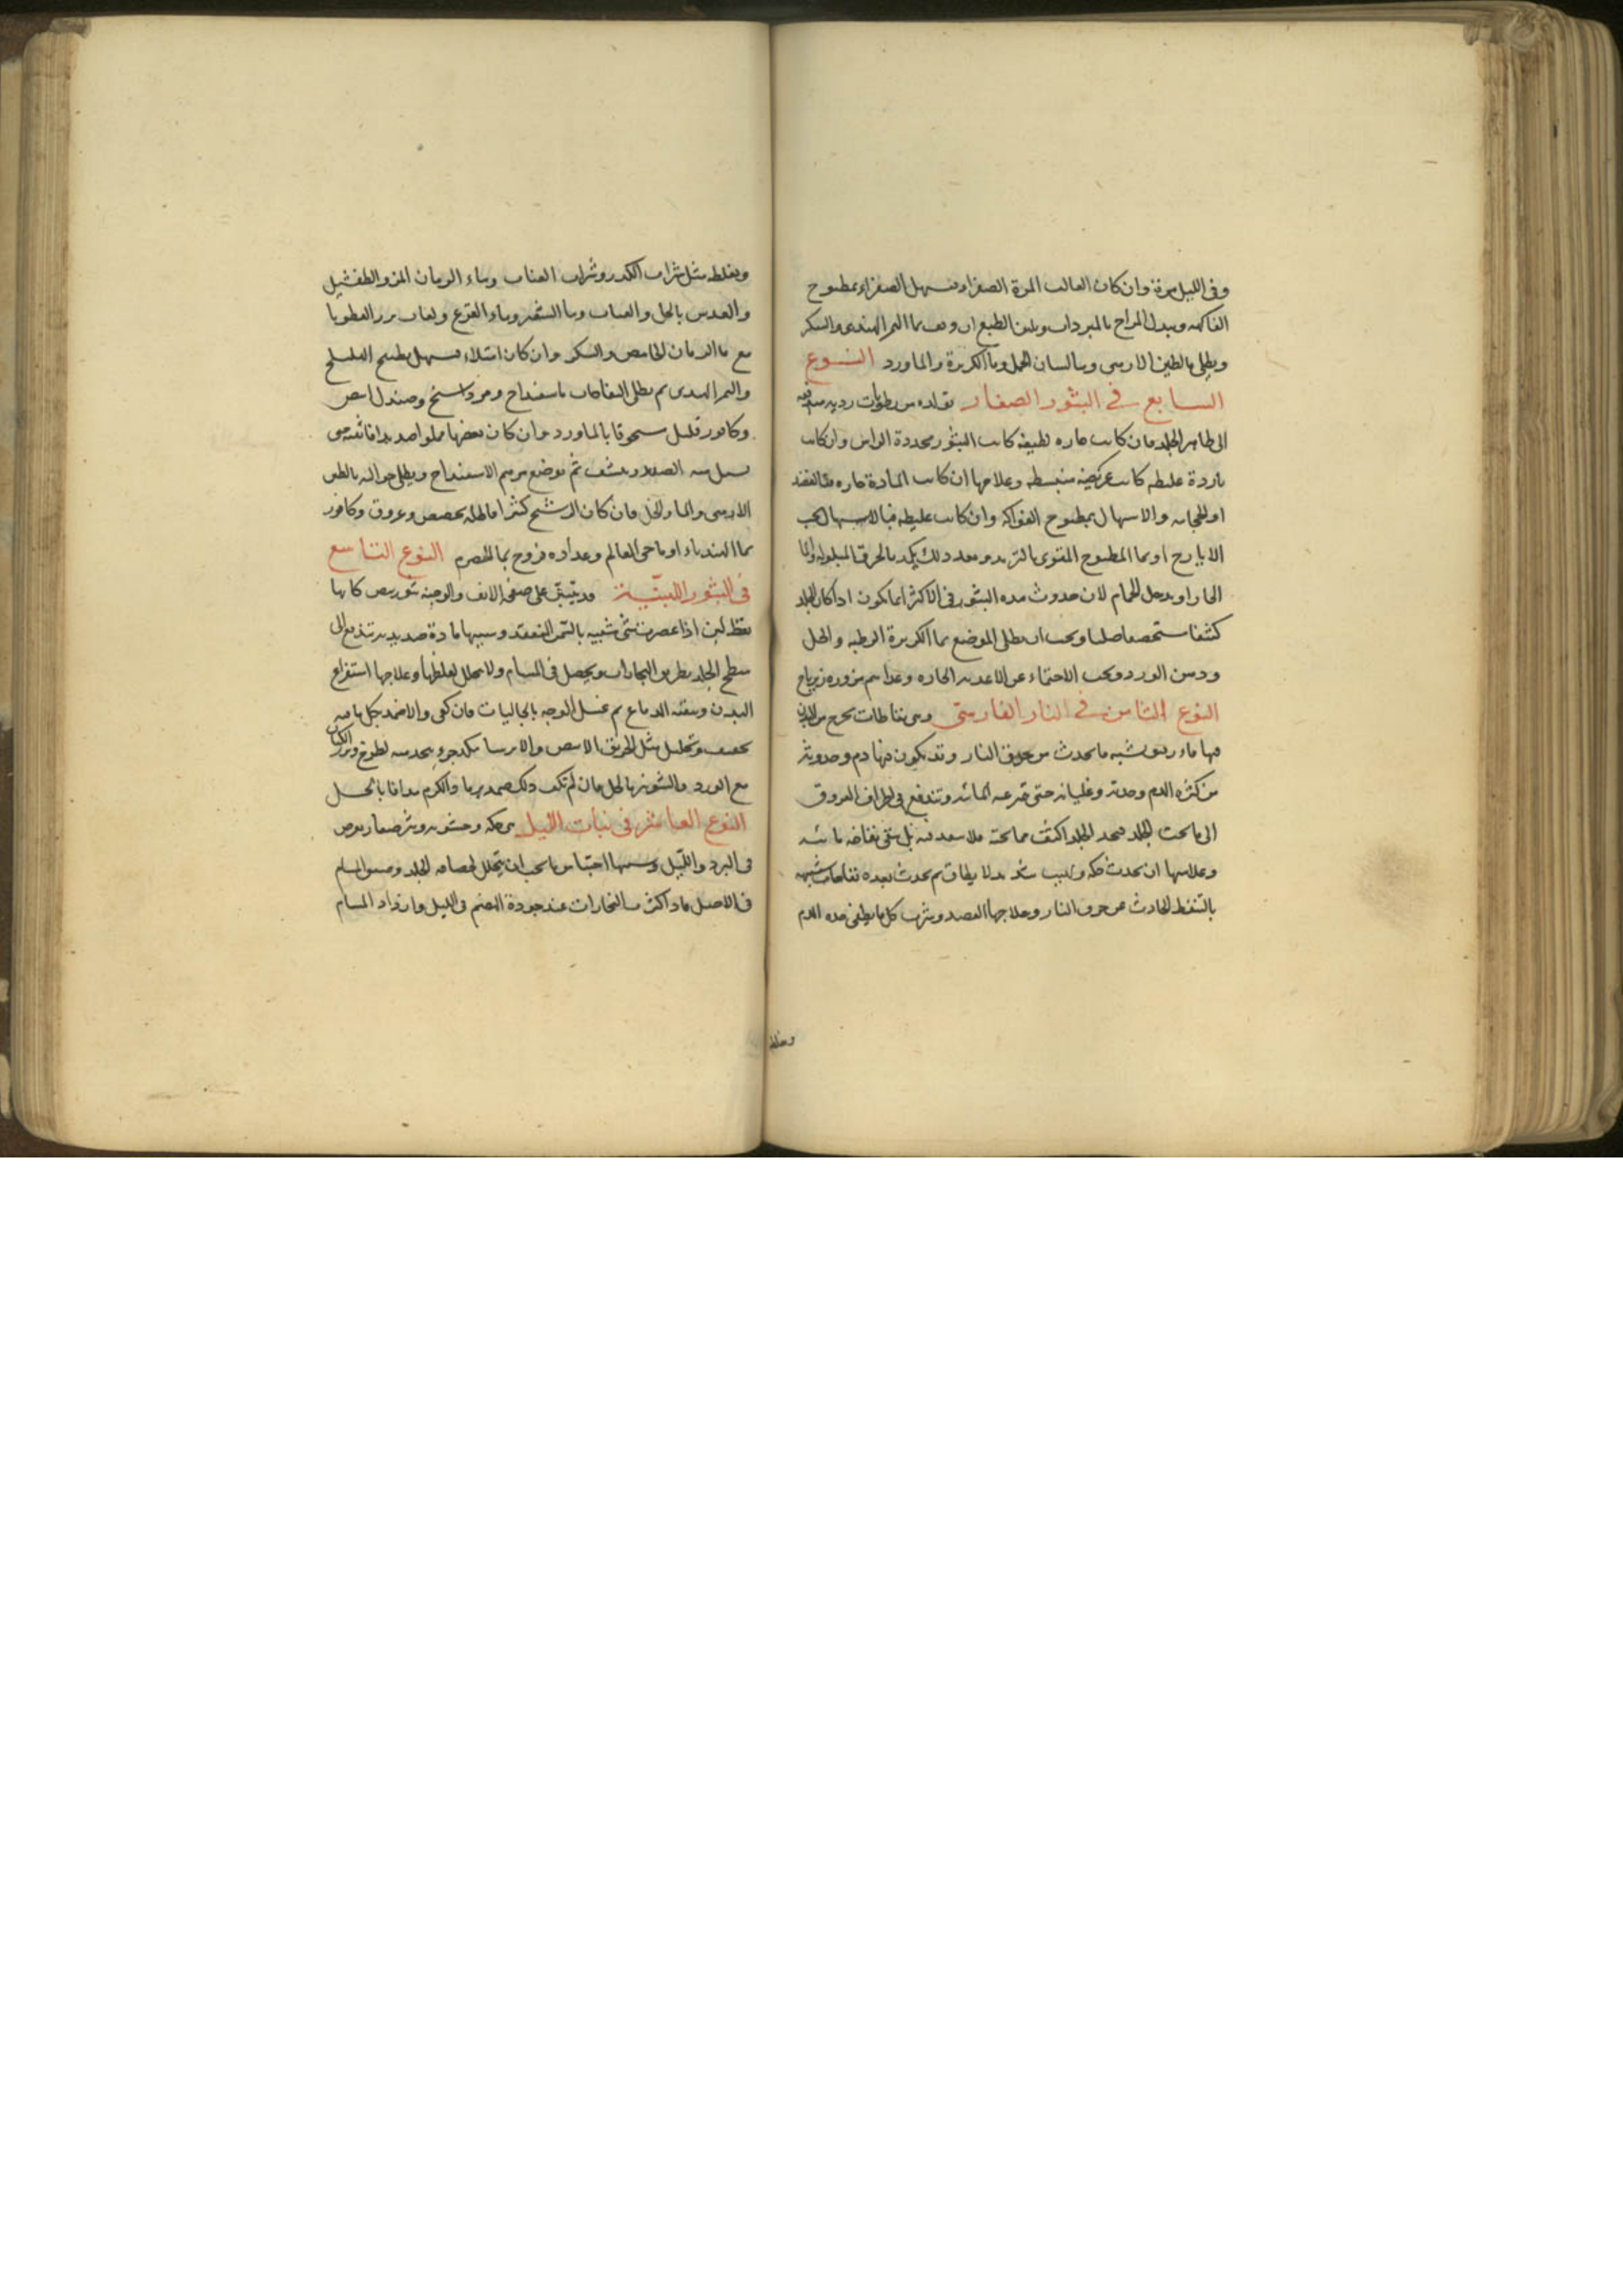 وفى الليل مرة وان كان الغالب المرة الصفراء فتسهل الصفراء بمطبوخ
الفاكهه ويبدل المزاج بالمبردات ويلين الطبع ان وقف بماالتمر الهندى والسكر
ويطلى بالطين الارمنى وبما لسان الحمل وماالكزبرة والماورد النـــوع
السابع فى البثور الصغار تولده من رطوبات رديه مندفعه
الى ظاهر الجلد فان كانت حاره لطيفه كانت البثور محددة الراس وان كانت
باردة غليظه كانت عريضه منبسطه وعلاجها ان كانت المادة حاره فالفصد
او الحجامه والاسهال بمطبوخ الفواكه وان كانت غليظه فبالاسهال بحب
الايارج او بما المطبوخ المقوى بالتربد وبعد ذلك يكمد بالخرق المبلوله بالما
الحار او يدخل الحمام لان حدوث هذه البثور فى الاكثر انما يكون اذا كان الجلد
كثيفا مستحصفا صلبا ويجب ان يطلى الموضع بماالكزبرة الرطبه والخل
ودهن الورد ويجب الاحتماء عن الاغديه الحاره وغداهم مزوره زيرباج
النوع الثامن فى النار الفارسى وهى نفاطات تخرج من البدن
فيها ماء رقيق شبه ما يحدث من حرق النار وقد يكون فيها دم وحدوثه
من كثره الدم وحدته وغليانه حتى ترعه المائيه وتندفع فى اطراف العروق
الى ما تحت الجلد فيجد الجلد اكثف مما تحته فلا ينفذ فيه بل يبقى نفاخه مائيه
وعلامتها ان يحدث حكه ولهيب شديد لا يطاق ثم يحدث بعده نفاخات شبيهه
بالتنفط الحادث عن حرق النار وعلاجها الفصد وشرب كل ما يطفى حده الدم
ويغلظ
ويغلظه مثل شراب الكدر وشراب العناب وماء الرمان المز والطفشيل
والعدس بالخل والعناب وما الشعير وماء القرع ولعاب بزرالقطونا
مع ماالرمان الحامض والسكر وان كان امتلاء فيسهل بطبيخ الهليلج
والتمر الهندى ثم يطلى النفاخات باسفيداج ومرداسنج وصندل ابيض
وكافور قليل مسحوقا بالماورد وان كان بعضها مملوا صديدا فاتقه حتى
يسيل منه الصديد وينشف ثم يوضع مرهم الاسفيداج ويطلى حواليه بالطين
الارمنى والماء والخل فان كان الرشح كثيرا فاطله بحضض وعروق وكافور
بماالهندباء او ما حى العالم وغداوه فروج بما الحصرم النوع التاسع
فى البثور اللبنية قد يتبثق على صفحه الانف والوجنه بثور بيض كانها
نقط لبن اذا عصرت شئ شبيه بالسمن المنعقد وسببها مادة صديديه تندفع الى
سطح الجلد بطريق البخارات ويحصل فى المسام ولا يتحلل لغلظها وعلاجها استفراغ
البدن وتنقيه الدماغ ثم غسل الوجه بالجاليات فان كفى والاضمد بكل ما فيه
تجفيف وتحليل مثل الخربق الابيض والايرسا بكل جزء يتخذ منه لطوخ وبزر الكتان
مع الورد والشونيز بالخل فان لم تكف ذلك ضمد برماد الكرم مدافا بالخل
النوع العاشر فى نبات الليل هى حكه وخشونه وبثر صغار يعرض
فى البرد والليل وسببها احتباس ما يجب ان يتحلل لحصافه الجلد وضيق المسام
فى الاصل فاذا كثرت البخارات عند جودة الهضم فى الليل وازداد المسام